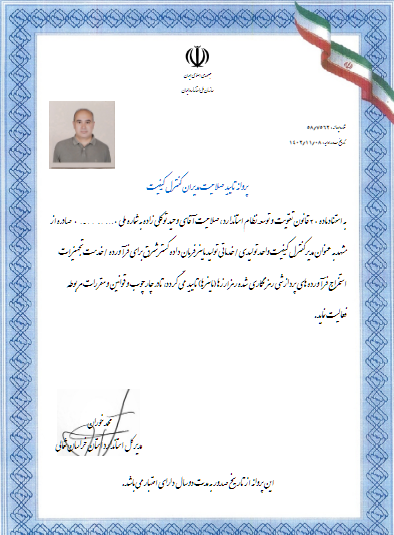 جمهوری اسلامی ایران
سازمان ملی استاندارد ایران
شماره پروانه: ۵۸/۷۵۶۲
تاریخ صدور: ۱۴۰۲/۱۱/۰۸
پروانه تایید صلاحیت مدیران کنترل کیفیت
به استناد ماده ۲۰ قانون تقویت و توسعه نظام استاندارد، صلاحیت آقای وحید توکلی زاده به شماره ملی ۰............۰ صادره از
مشهد به عنوان مدیر کنترل کیفیت واحد تولیدی / خدماتی تولید ماینر فرمان داده گستر شرق برای فرآورده / خدمت تجهیزات
استخراج فرآورده های پردازشی رمزنگاری شده رمز ارزها (ماینرها) تایید می گردد، تا در چارچوب قوانین و مقررات مربوطه
فعالیت نماید.
مدیر کل استاندارد استان خراسان شمالی
این پروانه از تاریخ صدور به مدت دو سال دارای اعتبار می باشد.